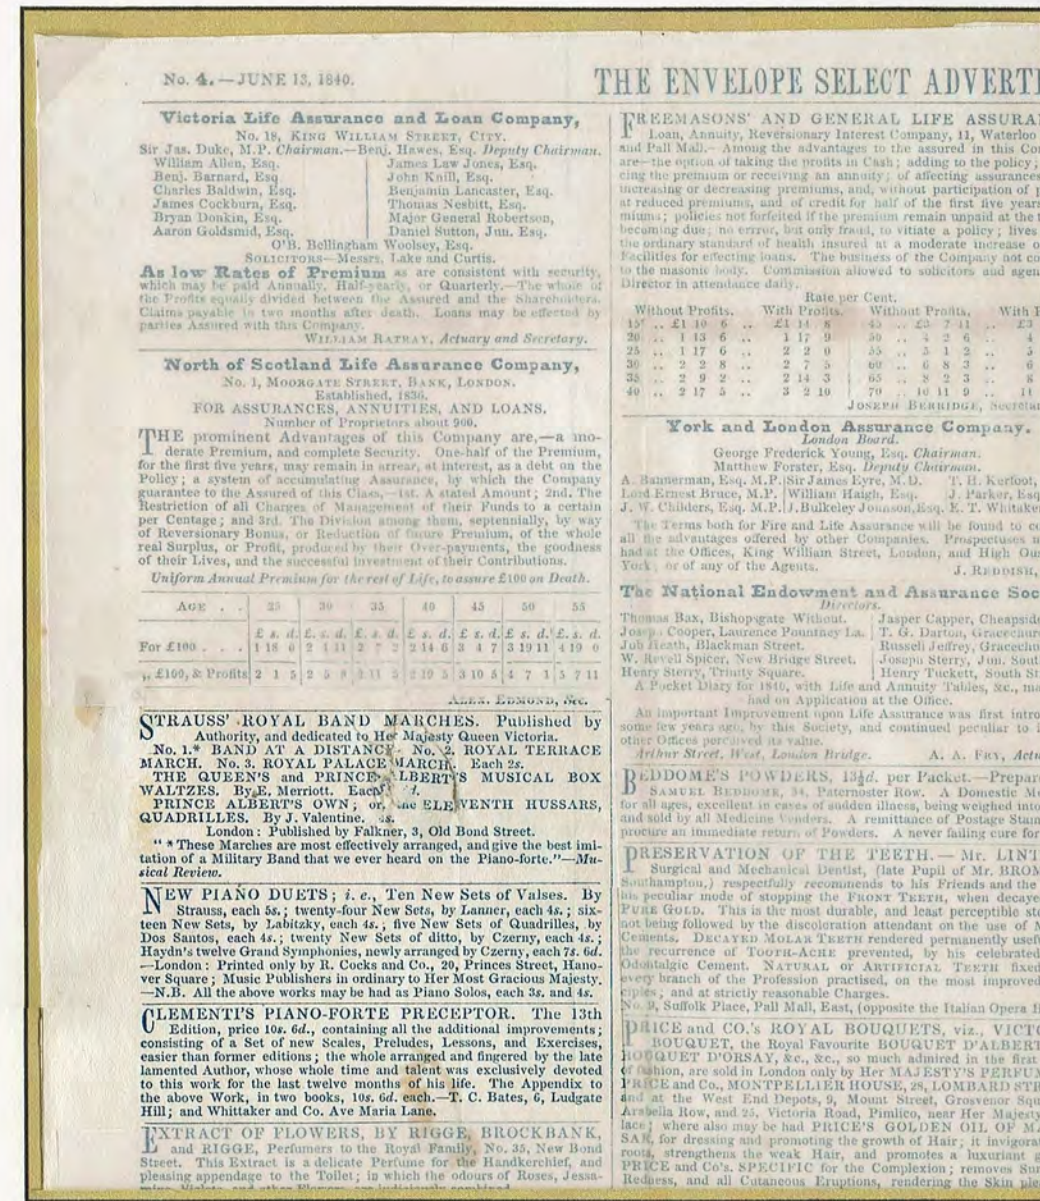 No. 4.—JUNE 13, 1840.
THE ENVELOPE SELECT ADVERTI
Victoria Life Assurance and Loan Company,
No. 18, KING WILLIAM STREET, CITY.
Sir Jas. Duke, M.P. Chairman.—Benj. Hawes, Esq. Deputy Chairman.
William Allen, Esq. James Law Jones, Esq.
Benj. Barnard, Esq John Knill, Esq.
Charles Baldwin, Esq. Benjamin Lancaster, Esq.
James Cockburn, Esq. Thomas Nesbitt, Esq.
Bryan Donkin, Esq. Major General Robertson,
Aaron Goldsmid, Esq. Daniel Sutton, Jun. Esq.
O'B. Bellingham Woolsey, Esq.
SOLICITORS—Messrs. Lake and Curtis.
As low Rates of Premium as are consistent with security,
which may be paid Annually, Half-yearly, or Quarterly.—The whole of
the Profits equally divided between the Assured and the Shareholders.
Claims payable in two months after death. Loans may be effected by
parties Assured with this Company.
WILLIAM RATRAY, Actuary and Secretary.
North of Scotland Life Assurance Company,
No. 1, MOORGATE STREET, BANK, LONDON.
Established, 1836.
FOR ASSURANCES, ANNUITIES, AND LOANS.
Number of Proprietors about 900.
THE prominent Advantages of this Company are,—a mo-
derate Premium, and complete Security. One-half of the Premium,
for the first five years, may remain in arrear, at interest, as a debt on the
Policy; a system of accumulating Assurance, by which the Company
guarantee to the Assured of this Class,—1st. A stated Amount; 2nd. The
Restriction of all Charges of Management of their Funds to a certain
per Centage; and 3rd. The Division among them, septennially, by way
of Reversionary Bonus, or Reduction of future Premium, of the whole
real Surplus, or Profit, produced by their Over-payments, the goodness
of their Lives, and the successful investment of their Contributions.
Uniform Annual Premium for the rest of Life, to assure £100 on Death.
AGE . . 25 30 35 40 45 50 55
£ s. d. £. s. d. £ s. d. £ s. d. £ s. d. £ s. d. £. s. d.
For £100 . . . 1 18 0 2 14 6 3 4 7 3 19 11 4 19 0
,, £100, & Profits 2 1 5 3 10 5 4 7 1 5 7 11
ALEX. EDMOND, &c.
STRAUSS' ROYAL BAND MARCHES. Published by
Authority, and dedicated to Her Majesty Queen Victoria.
No. 1.* BAND AT A DISTANCE No. 2. ROYAL TERRACE
MARCH. No. 3. ROYAL PALACE MARCH. Each 2s.
THE QUEEN'S and PRINCE ALBERT'S MUSICAL BOX
WALTZES. By E. Merriott. Each
PRINCE ALBERT'S OWN; or, the ELEVENTH HUSSARS,
QUADRILLES. By J. Valentine.
London: Published by Falkner, 3, Old Bond Street.
" * These Marches are most effectively arranged, and give the best imi-
tation of a Military Band that we ever heard on the Piano-forte."—Mu-
sical Review.
NEW PIANO DUETS; i. e., Ten New Sets of Valses. By
Strauss, each 5s.; twenty-four New Sets, by Lanner, each 4s.; six-
teen New Sets, by Labitzky, each 4s.; five New Sets of Quadrilles, by
Dos Santos, each 4s.; twenty New Sets of ditto, by Czerny, each 4s.;
Haydn's twelve Grand Symphonies, newly arranged by Czerny, each 7s. 6d.
—London: Printed only by R. Cocks and Co., 20, Princes Street, Hano-
ver Square; Music Publishers in ordinary to Her Most Gracious Majesty.
—N.B. All the above works may be had as Piano Solos, each 3s. and 4s.
CLEMENTI'S PIANO-FORTE PRECEPTOR. The 13th
Edition, price 10s. 6d., containing all the additional improvements;
consisting of a Set of new Scales, Preludes, Lessons, and Exercises,
easier than former editions; the whole arranged and fingered by the late
lamented Author, whose whole time and talent was exclusively devoted
to this work for the last twelve months of his life. The Appendix to
the above Work, in two books, 10s. 6d. each.—T. C. Bates, 6, Ludgate
Hill; and Whittaker and Co. Ave Maria Lane.
EXTRACT OF FLOWERS, BY RIGGE, BROCKBANK,
and RIGGE, Perfumers to the Royal Family, No. 35, New Bond
Street. This Extract is a delicate Perfume for the Handkerchief, and
pleasing appendage to the Toilet; in which the odours of Roses, Jessa-
FREEMASONS' AND GENERAL LIFE ASSURA
Loan, Annuity, Reversionary Interest Company, 11, Waterloo
and Pall Mall.—Among the advantages to the assured in this Com
are—the option of taking the profits in Cash; adding to the policy;
cing the premium or receiving an annuity; of affecting assurances
increasing or decreasing premiums, and, without participation of p
at reduced premiums, and of credit for half of the first five years
miums; policies not forfeited if the premium remain unpaid at the t
becoming due; no error, but only fraud, to vitiate a policy; lives
the ordinary standard of health insured at a moderate increase o
Facilities for effecting loans. The business of the Company not co
to the masonic body. Commission allowed to solicitors and agen
Director in attendance daily.
Rate per Cent.
Without Profits. With Profits. Without Profits. With P
15 .. £1 10 6 .. £1 14 8 45 .. £3 7 11 .. £3
20 .. 1 13 6 .. 1 17 9 50 .. 4 2 6 .. 4
25 .. 1 17 6 .. 2 2 0 55 .. 5 1 2 .. 5
30 .. 2 2 8 .. 2 7 5 60 .. 6 8 3 .. 6
35 .. 2 9 2 .. 2 14 3 65 .. 8 2 3 .. 8
40 .. 2 17 5 .. 3 2 10 70 .. 10 11 9 .. 11
JOSEPH BERRIDGE, Secretar
York and London Assurance Company.
London Board.
George Frederick Young, Esq. Chairman.
Matthew Forster, Esq. Deputy Chairman.
A. Bannerman, Esq. M.P. Sir James Eyre, M.D. T. H. Kerfoot,
Lord Ernest Bruce, M.P. William Haigh, Esq. J. Parker, Esq
J. W. Childers, Esq. M.P. J. Bulkeley Johnson, Esq. E. T. Whitaker
The Terms both for Fire and Life Assurance will be found to co
all the advantages offered by other Companies. Prospectuses m
had at the Offices, King William Street, London, and High Ous
York, or of any of the Agents. J. REDDISH,
The National Endowment and Assurance Soc
Directors.
Thomas Bax, Bishopsgate Without. Jasper Capper, Cheapside
Joseph Cooper, Laurence Pountney La. T. G. Darton, Gracechurc
Job Heath, Blackman Street. Russell Jeffrey, Gracechu
W. Revell Spicer, New Bridge Street. Joseph Sterry, Jun. Sout
Henry Sterry, Trinity Square. Henry Tuckett, South St
A Pocket Diary for 1840, with Life and Annuity Tables, &c., ma
had on Application at the Office.
An important Improvement upon Life Assurance was first intro
some few years ago, by this Society, and continued peculiar to i
other Offices perceived its value.
Arthur Street, West, London Bridge. A. A. FRY, Actu
BEDDOME'S POWDERS, 13½d. per Packet.—Prepare
SAMUEL BEDDOME, 34, Paternoster Row. A Domestic Me
for all ages, excellent in cases of sudden illness, being weighed into
and sold by all Medicine Venders. A remittance of Postage Stam
procure an immediate return of Powders. A never failing cure for
PRESERVATION OF THE TEETH.—Mr. LINT
Surgical and Mechanical Dentist, (late Pupil of Mr. BROM
Southampton,) respectfully recommends to his Friends and the
his peculiar mode of stopping the FRONT TEETH, when decaye
PURE GOLD. This is the most durable, and least perceptible sto
not being followed by the discoloration attendant on the use of M
Cements. DECAYED MOLAR TEETH rendered permanently usefu
the recurrence of TOOTH-ACHE prevented, by his celebrated
Odontalgic Cement. NATURAL or ARTIFICIAL TEETH fixed
every branch of the Profession practised, on the most improved
ciples; and at strictly reasonable Charges.
No. 9, Suffolk Place, Pall Mall, East, (opposite the Italian Opera H
PRICE and CO.'s ROYAL BOUQUETS, viz., VICTO
BOUQUET, the Royal Favourite BOUQUET D'ALBERT
BOUQUET D'ORSAY, &c., &c., so much admired in the first
of fashion, are sold in London only by Her MAJESTY'S PERFUM
PRICE and Co., MONTPELLIER HOUSE, 28, LOMBARD STR
and at the West End Depots, 9, Mount Street, Grosvenor Squ
Arabella Row, and 25, Victoria Road, Pimlico, near Her Majesty
lace; where also may be had PRICE'S GOLDEN OIL OF MA
SAR, for dressing and promoting the growth of Hair; it invigorat
roots, strengthens the weak Hair, and promotes a luxuriant g
PRICE and Co's. SPECIFIC for the Complexion; removes Sun
Redness, and all Cutaneous Eruptions, rendering the Skin plea